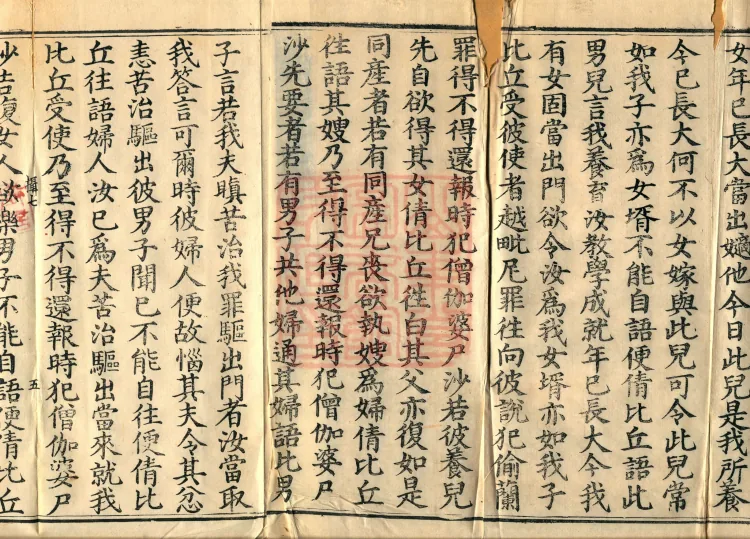 女年已長大當出嫡他今日此兒是我所養
今已長大何不以女嫁與此兒可令此兒常
如我子亦爲女壻不能自語便倩比丘語此
男兒言我養育汝教學成就年已長大今我
有女固當出門欲令汝爲我女壻亦如我子
比丘受彼使者越毗尼罪往向彼說犯偷蘭
罪得不得還報時犯僧伽婆尸沙若彼養兒
先自欲得其女倩比丘徃白其父亦復如是
同産者若有同産兄喪欲執嫂爲婦倩比丘
徃語其嫂乃至得不得還報時犯僧伽婆尸
沙先要者若有男子共他婦通其婦語比男
子言若我夫瞋苦治我罪驅出門者汝當取
我答言可爾時彼婦人便故惱其夫令其忿
恚苦治驅出彼男子聞已不能自往便倩比
丘往語婦人汝已爲夫苦治驅出當來就我
比丘受使乃至得不得還報時犯僧伽婆尸
攝七 五
沙若復女人欲樂男子不能自語便倩比丘